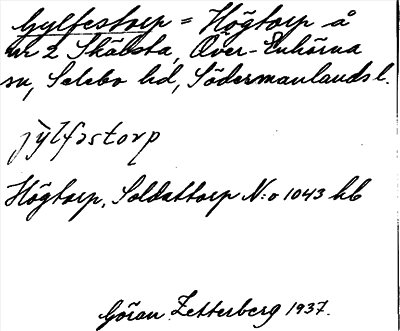 Gylfestorp = Högtorp å
nr 2 Skäbsta, Över-Enhörna
sn, Selebo hd, Södermanlands l.
jylfəstorp
Högtorp, Soldattorp N:o 1043 hb
Göran Zetterberg 1937.